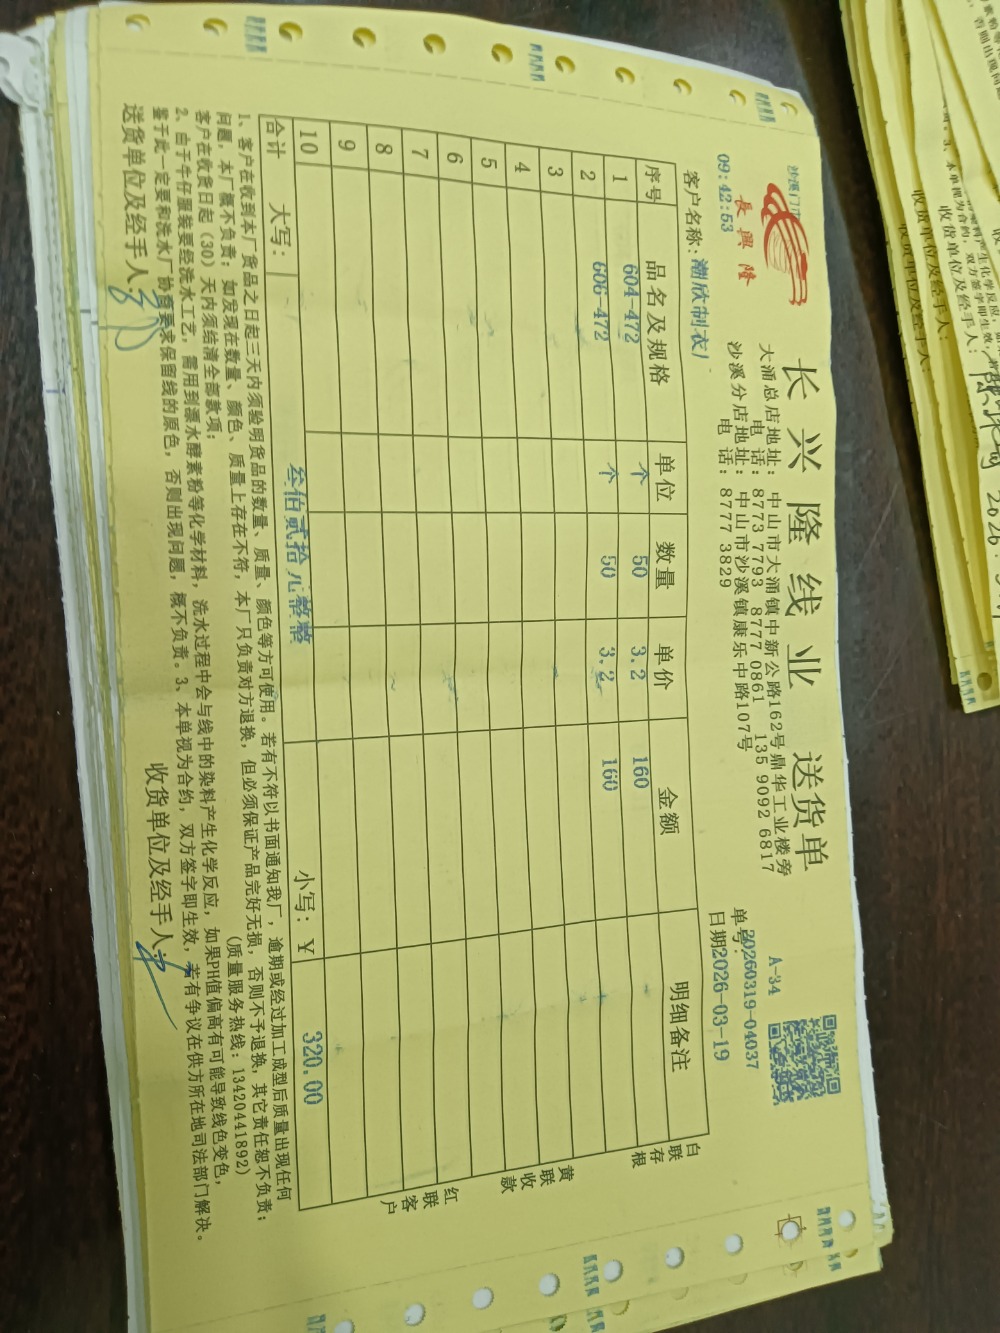 沙溪门市
長興隆
09:42:53
长兴隆线业 送货单
大涌总店地址：中山市大涌镇中新公路162号鼎华工业楼旁
电话：8773 7793 8777 0861 135 9092 6817
沙溪分店地址：中山市沙溪镇康乐中路107号
电话：8777 3829
A-34
单号：20260319-04037
日期2026-03-19
客户名称：潮欣制衣
序号 品名及规格 单位 数量 单价 金额 明细备注
1 604-472 个 50 3.2 160
2 606-472 个 50 3.2 160
3
4
5
6
7
8
9
10
合计 大写：叁佰贰拾元整整 小写：￥ 320.00
白联存根
黄联收款
红联客户
1、客户在收到本厂货品之日起三天内须验明货品的数量、质量、颜色等方可使用。若有不符以书面通知我厂，逾期或经过加工成型后质量出现任何
问题，本厂概不负责；如发现在数量、颜色、质量上存在不符，本厂只负责对方退换，但必须保证产品完好无损，否则不予退换，其它责任恕不负责；
客户在收货日起（30）天内须结清全部款项； （质量服务热线：13420441892）
2、由于牛仔服装要经洗水工艺，需用到漂水酵素粉等化学材料，洗水过程中会与线中的染料产生化学反应，如果PH值偏高有可能导致线色变色，
鉴于此一定要和洗水厂协商要求保留线的原色，否则出现问题，概不负责。3、本单视为合约，双方签字即生效，若有争议在供方所在地司法部门解决。
送货单位及经手人：
收货单位及经手人：
收货单位及经手人：
收货单位及经手人：